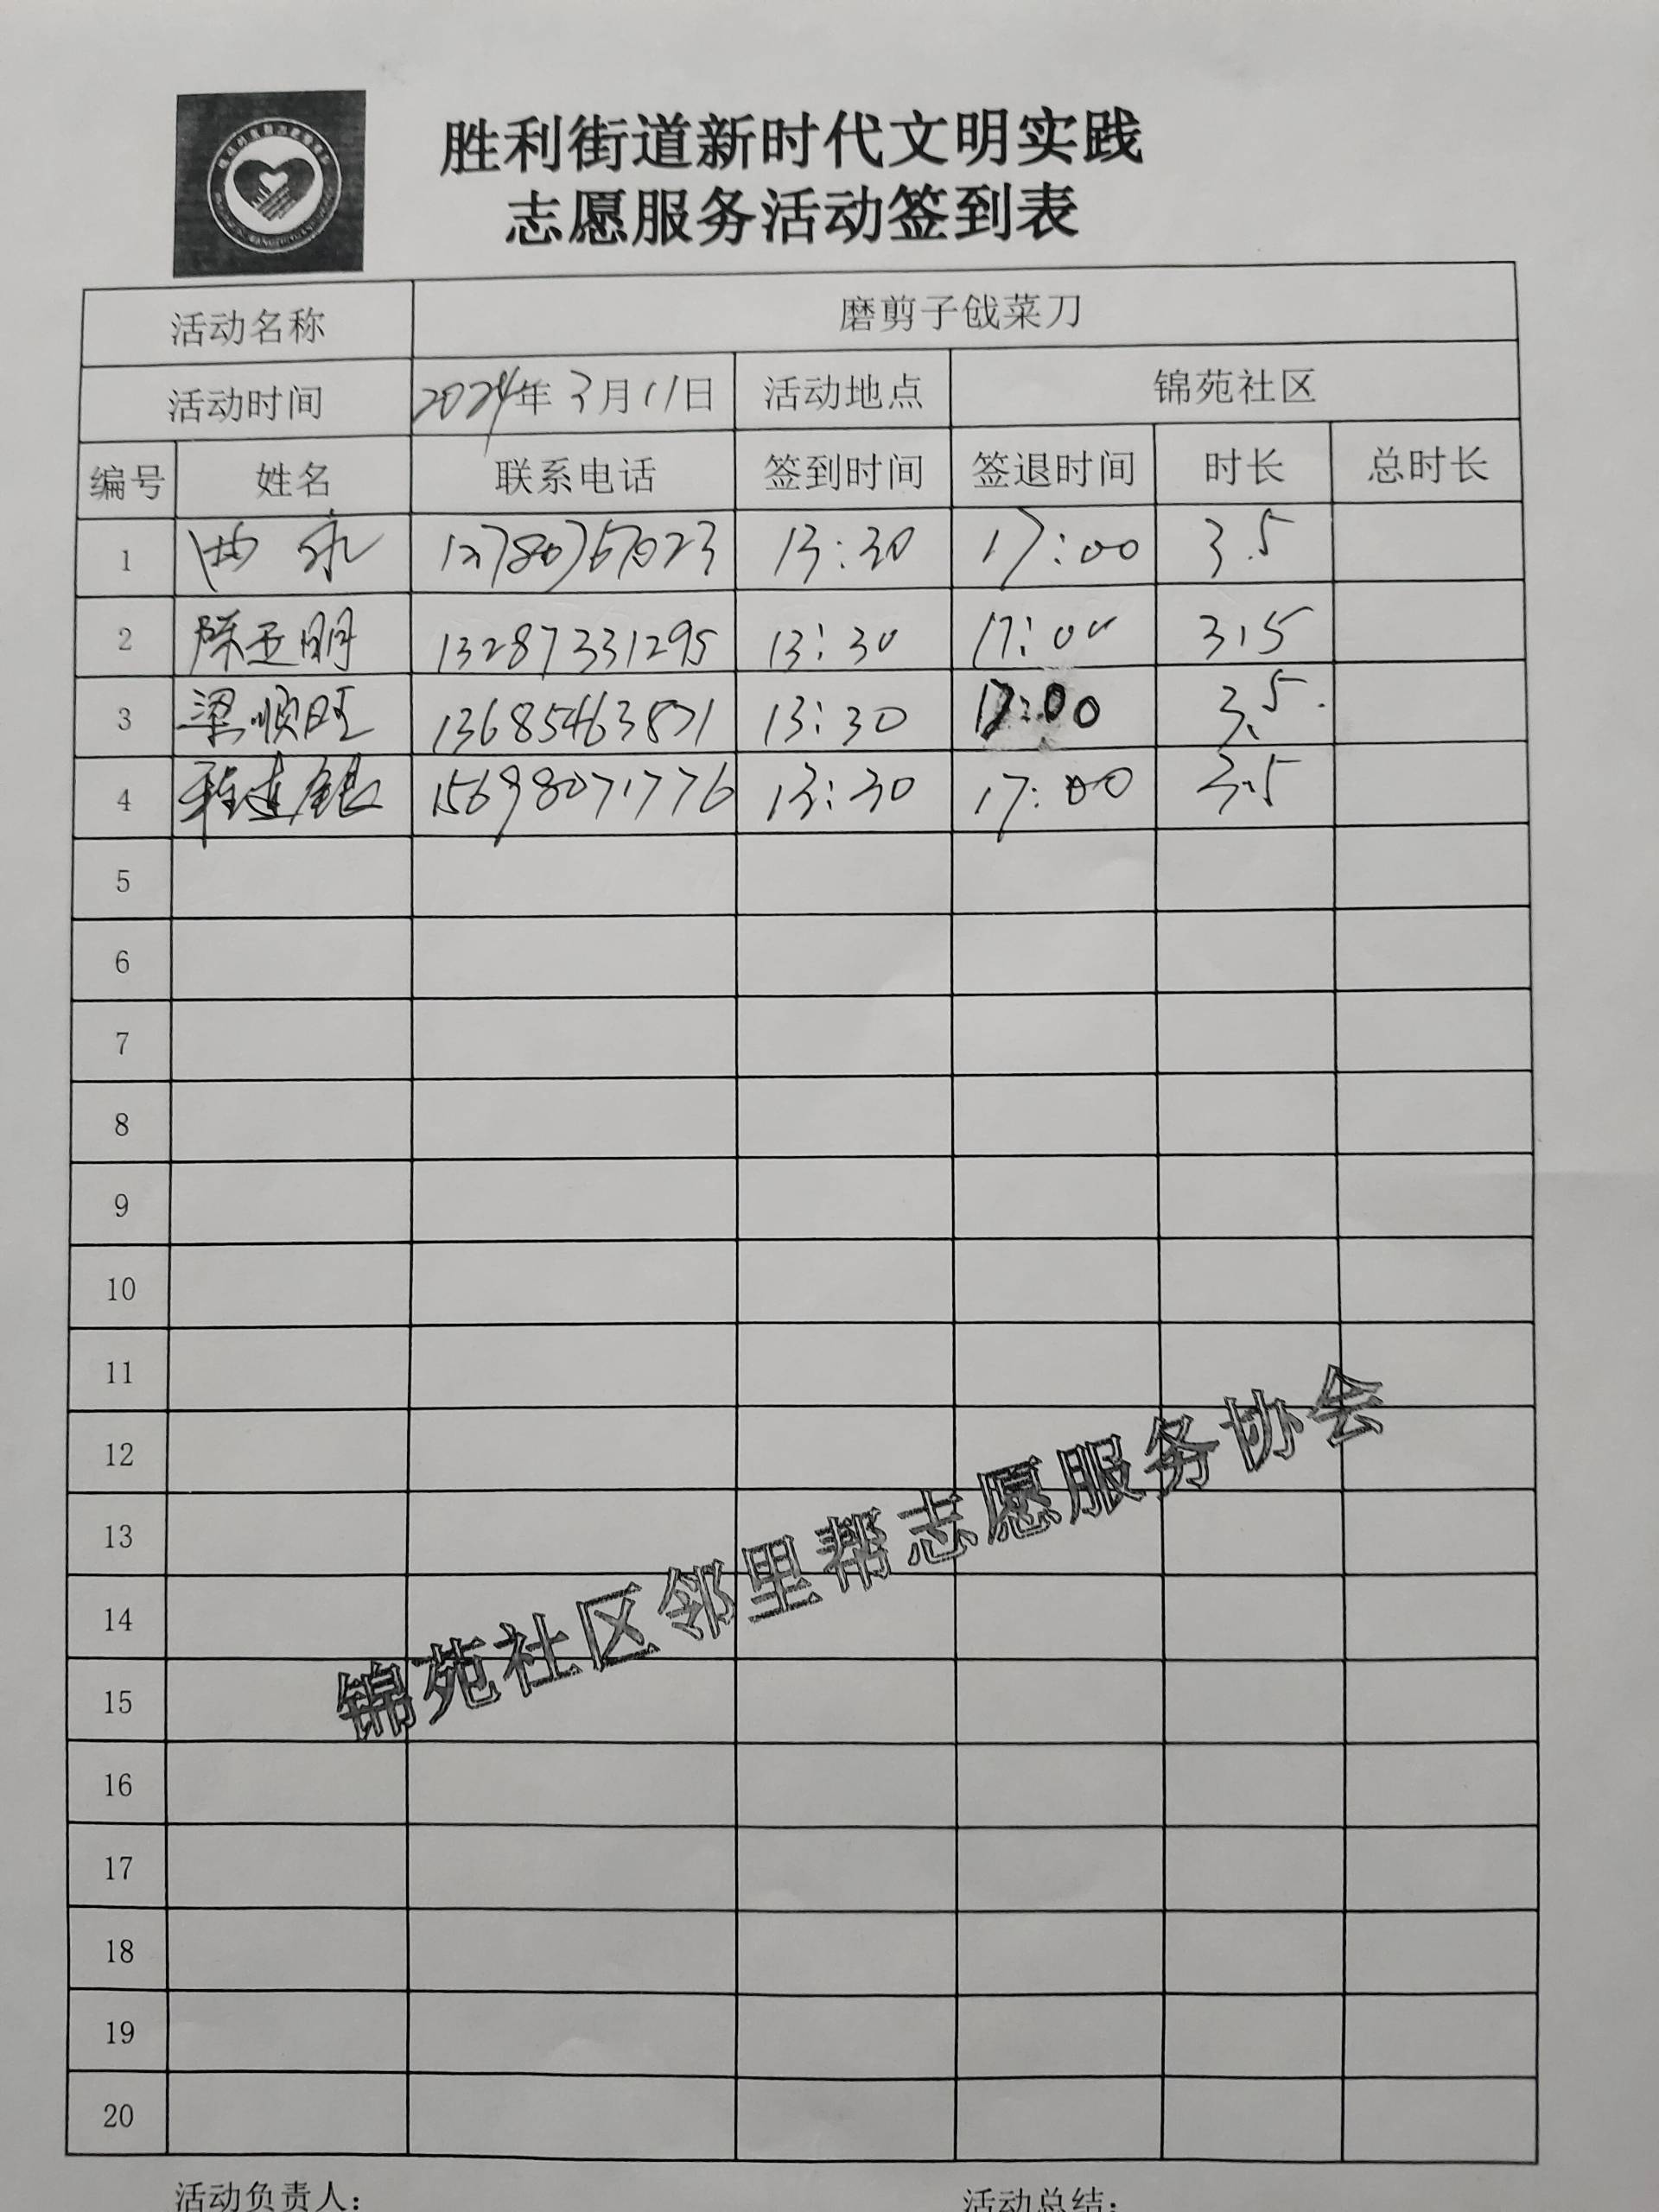 胜利街道新时代文明实践
志愿服务活动签到表
活动名称 磨剪子戗菜刀
活动时间 2024年3月11日 活动地点 锦苑社区
编号 姓名 联系电话 签到时间 签退时间 时长 总时长
1 曲永 13:30 17:00 3.5
2 陈玉明 13287331295 13:30 17:00 3.5
3 梁顺旺 13685463871 13:30 17:00 3.5
4 程建银 15698071776 13:30 17:00 3.5
5
6
7
8
9
10
11
12
13
14
15
16
17
18
19
20
锦苑社区邻里帮志愿服务协会
活动负责人: 活动总结: